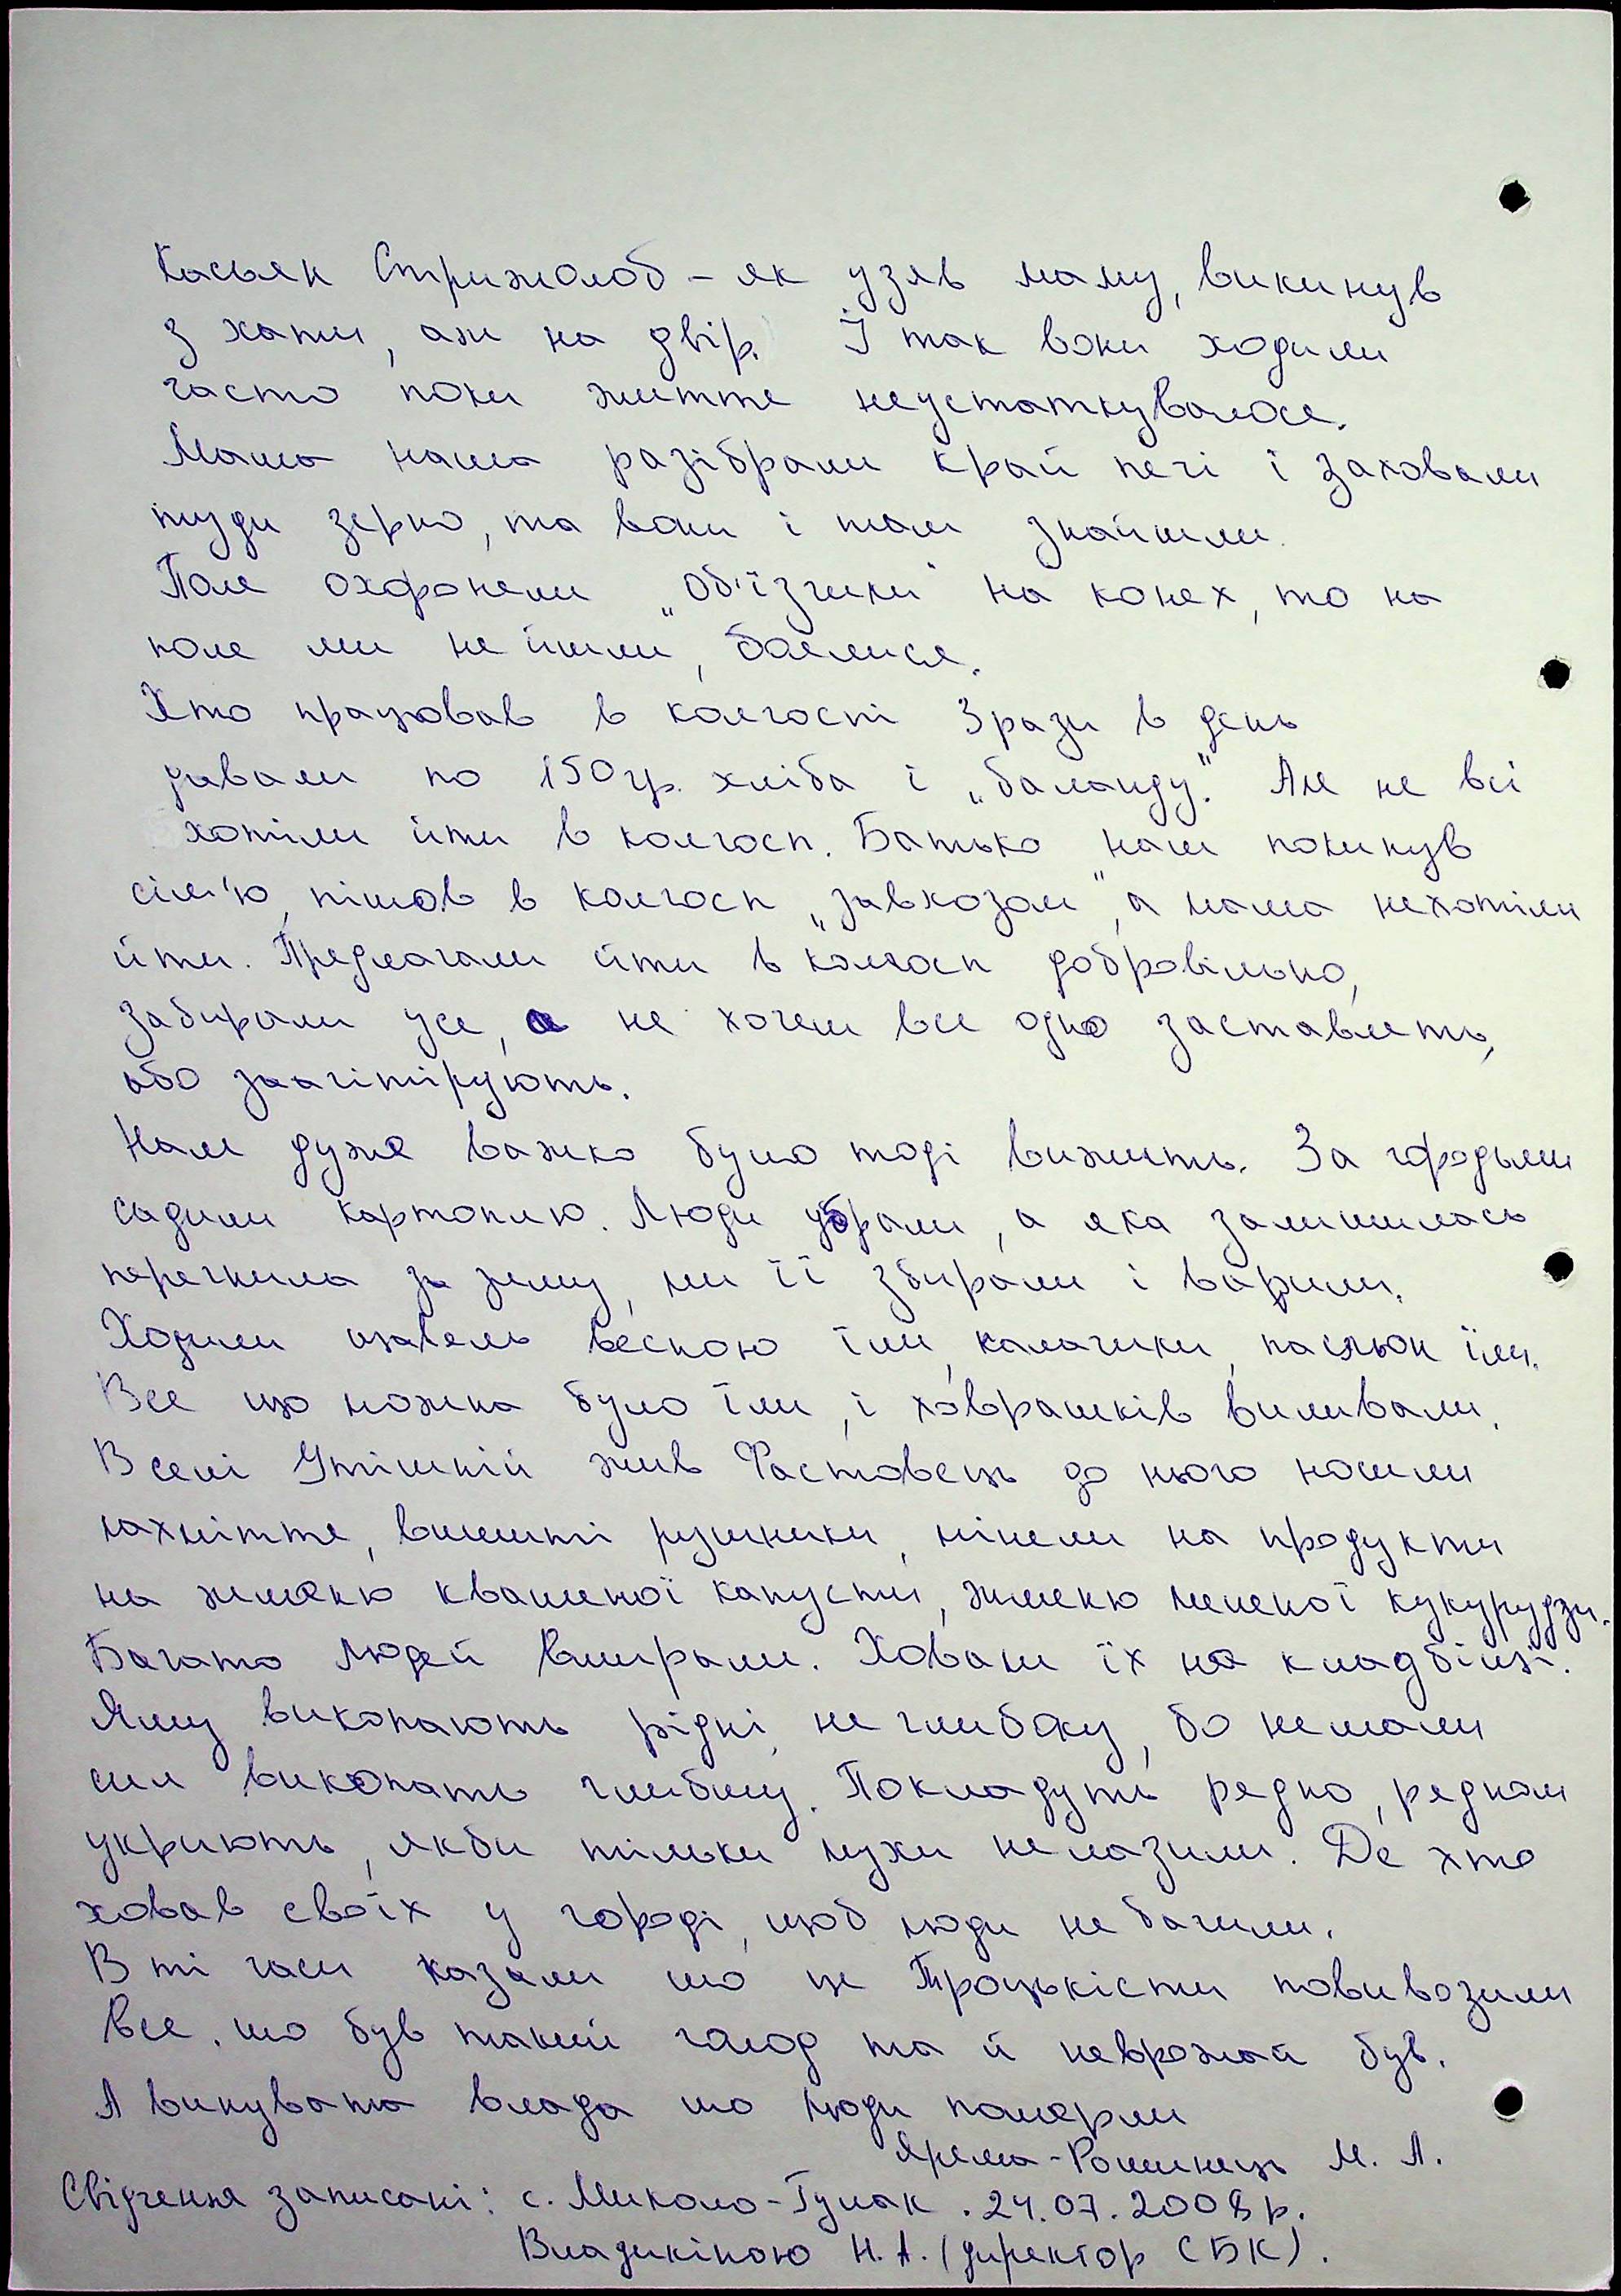 Касьян Стрижолоб – як узяв маму, викинув
з хати, аж на двір. І так вони ходили
часто поки життя неустаткувалося.
Мама наша разібрали край печі і заховали
туди зерно, та вони і там знайшли.
Поле охороняли „об'їзчики" на конех, то на
поле ми не йшли, боялися.
Хто працював в колгоспі 3 рази в день
давали по 150 гр. хліба і „баланду". Але не всі
хотіли йти в колгосп. Батько наш покинув
сім'ю, пішов в колгосп „завхозом", а мама нехотіли
йти. Предлагали йти в колгосп добровільно,
забирали усе, а не хочеш все одно заставлять,
або заагітірують.
Нам дуже важко було тоді вижить. За городьми
садили картоплю. Люди убрали, а яка залишилась
перегнила за зиму, ми її збирали і варили.
Ходили щавель весною їли, калачики, пасльон їли.
Все що можна було їли, і ховрашків виливали.
В селі Утішній жив Фастовець до нього носили
лахміття, вишиті рушники, міняли на продукти
на жменю квашеної капусти, жменю меленої кукурудзи.
Багато людей вмирали. Ховали їх на кладбіщі.
Яму викопають рідні, не глибоку, бо немали
сил викопать глибшу. Покладуть рядно, рядном
укриють, якби тільки мухи нелазили. Де хто
ховав своїх у городі, щоб люди не бачили.
В ті часи казали шо це Троцькісти повивозили
все, шо був такий голод та й неврожай був.
А винувата влада шо люди померли
Ярема-Роминець М. А.
Свідчення записані: с. Миколо-Гулак. 24.07.2008 р.
Владикіною Н. А. (директор СБК).